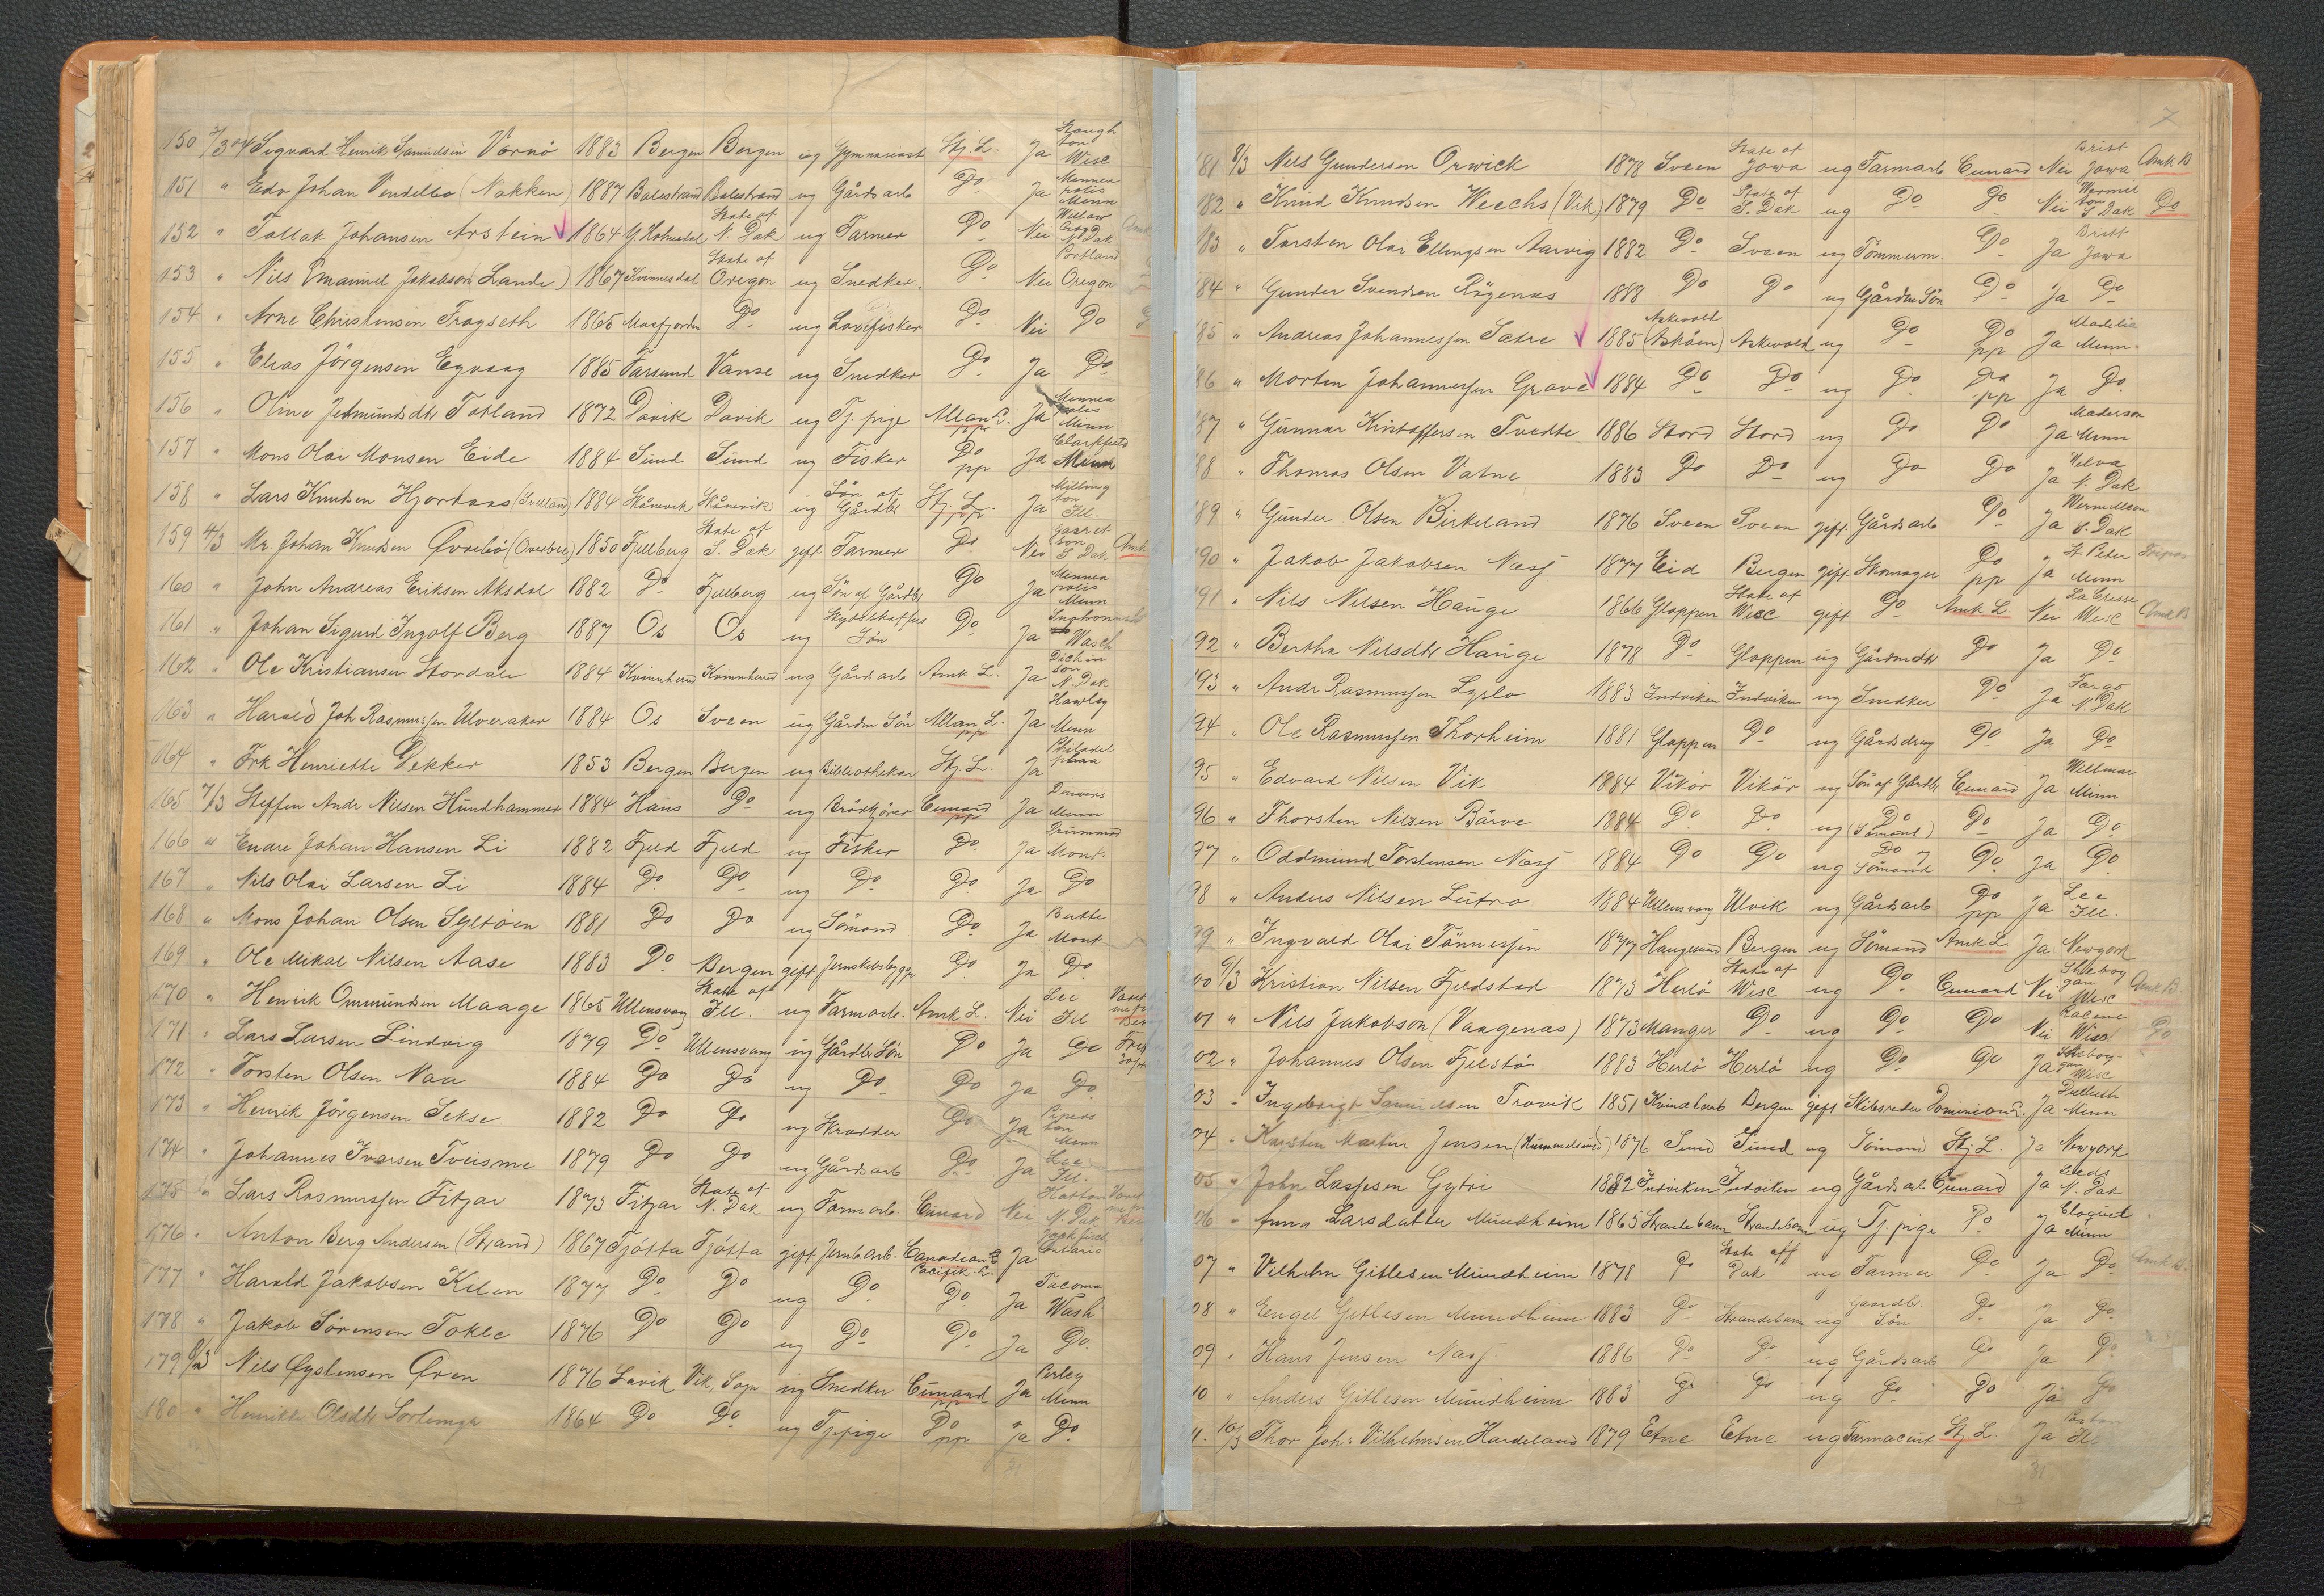 150 3/3 04 Sigvard Henrik Samuelsen Varnö 1883 Bergen Bergen ug Gymnasiast Stj L. Ja Stoughton Wisc
151 " Edv Johan Vendelbo (Nakken) 1887 Balestrand Balestrand ug Gårdsarb Do Ja Minneapolis Minn
152 " Tollak Johansen Arstein 1864 State of N. Dak ug Farmer Do Nei Willow City N Dak
153 " Nils Emanuel Jakobson (Lande) 1867 Kvinnesdal State of Oregon ug Snedker Do Nei Portland Oregon
154 " Arne Christensen Fragseth 1865 Do ug Laxefisker Do Nei Do
155 " Elias Jörgensen Egvaag 1885 Farsund Vanse ug Snedker Do Ja Do
156 " Oline Totland 1872 Davik Davik ug Tj. pige Allan L. pp Ja Minneapolis Minn
157 " Mons Olai Monsen Eide 1884 Sund Sund ug Fisker Do pp Ja Clarkfield Minn
158 " Lars Knudsen Hjortaas 1884 Skånevik Skånevik ug Sön af Gårdbr Stj L. pp. Ja Millington Ill.
159 4/3 Mr. Johan Knudsen Øvrebö (Overbee) 1850 Fjellberg State of S. Dak gift Farmer Do Nei Garretson S Dak. Amk.
160 " John Andreas Eriksen Aksdal 1882 Do Fjellberg ug Sön af Gårdbr Do Ja Minneapolis Minn
161 " Johan Sigurd Ingolf Berg 1887 Os Os ug Skydsskaffers Sön Do Ja Wasch
162 " Ole Kristiansen Stordal 1884 Kvinnherred Kvinnherred ug Gårdsarb Amk. L. Ja Dickinson N. Dak
163 " Harald Joh Rasmussen Ulveraker 1884 Os Sveen ug Gårdm Sön Allan L. pp Ja Hawley Minn
164 " Frk Henriette Dekker 1853 Bergen Bergen ug Bibliothekar Stj. L. Ja Philadelphia
165 7/3 Steffen Andr Nilsen Hundhammer 1884 Haus Do ug Brödkjörer Cunard pp Ja Minn
166 " Endre Johan Hansen Li 1882 Fjeld Fjeld ug Fisker Do. Ja Mont.
167 " Nils Olai Larsen Li 1884 Do Do ug Do Do Ja Do
168 " Mons Johan Olsen Syltöen 1881 Do Do ug Sömand Do Ja Butte Mont
169 " Ole Mikal Nilsen Aase 1883 Do Bergen gift Jernskibsbygger Do Ja Do
170 " Henrik Ommundsen Maage 1865 Ullensvang State of Ill. ug Farmarb. Amk L. Nei Lee Ill
171 " Lars Larsen Lindvig 1879 Do Ullensvang ug Gårdbr Sön Do Ja Do
172 " Torsten Olsen Naa 1884 Do Do ug Do Do Ja Do
173 " Henrik Jörgensen Sekse 1882 Do Do ug Skrædder Do Ja Minn
174 " Johannes Ivarsen Tveisme 1879 Do Do ug Gårdsarb Do Ja Lee Ill.
175 " Lars Rasmussen Fitjar 1873 Fitjar State of N. Dak ug Farmarb. Cunard Nei Hatton N. Dak
176 " Anton Berg Andersen (Strand) 1867 Tjötta Tjötta gift Jernb. arb. Canadian Pacifik. L. Ja Ontario
177 " Harald Jakobsen Kilen 1877 Do Do ug Do Do Ja Tacoma Wash
178 " Jakob Sörensen Tokle 1876 Do Do ug Do Do Ja Do.
179 8/3 Nils Øystensen Øren 1876 Lavik Vik, Sogn ug Snedker Cunard pp Ja Perley Minn
180 " Henrikke Olsdtr 1864 Do Do ug Tj. pige Do pp Ja Do
7
181 8/3 Nils Gundersen Orwick 1878 Sveen State of Jowa ug Farmarb Cunard Nei Britt Jowa Amk B
182 " Knud Knudsen Weechs (Vik) 1879 Do State of S. Dak ug Do Do Nei S Dak Do
83 " Torsten Olai Ellingsen Aarvig 1882 Do Sveen ug Tömmerm. Do Ja Britt Jowa
84 " Gunder Svendsen Rögenæs 1888 Do Do ug Gårdm Sön Do Ja Do
85 " Andreas Johannessen Sætre 1885 Askevold (Asköen) Askevold ug Do Do pp Ja Madelia Minn
86 " Morten Johannessen Grave 1884 Do Do ug Do. Do pp Ja Do.
87 " Gunnar Kristoffersen Tvedte 1886 Stord Stord ug Do Do Ja Maderson Minn
88 " Thomas Olsen Vatne 1883 Do Do ug Do Do Ja Velva N. Dak
89 " Gunder Olsen Birkeland 1876 Sveen Sveen gift. Gårdsarb Do Ja S. Dak
90 " Jakob Jakobsen Næss 1877 Eid Bergen gift. Skomager Do pp Ja St. Peter Minn
91 " Nils Nilsen Hauge 1866 Gloppen State of Wisc gift Do Amk L. Nei La Crosse Wisc Amk B
92 " Bertha Nilsdtr Hauge 1878 Do Gloppen ug Gårdm dtr Do Ja Do
193 " Andr Rasmussen Lyslo 1883 Indviken Indviken ug Snedker Do Ja Fargo N. Dak
194 " Ole Rasmussen Thorheim 1881 Gloppen Do ug Gårdsdreng Do Ja Do
195 " Edvard Nilsen Vik 1884 Vikör Vikör ug Sön af Gårdbr Cunard Ja Willmar Minn
96 " Thorsten Nilsen Börve 1884 Do Do ug Do (Sömand) Do Ja Do
97 " Oddmund Torstensen Næss 1884 Do Do ug Do Sömand Do Ja Do
98 " Anders Nilsen Lutro 1884 Ullensvang Ulvik ug Gårdsarb Do pp Ja Lee Ill.
99 " Ingvald Olai Tönnessen 1877 Haugesund Bergen ug Sömand Amk L Ja Newyork
200 9/3 Kristian Nilsen Fjeldstad 1873 Herlö State of Wisc ug Do Cunard Nei Sheboygan Wisc Amk B.
201 " Nils Jakobson (Vaagenæs) 1873 Manger Do ug Do Do Nei Racine Wisc Do
202 " Johannes Olsen Fjelstö 1883 Herlö Herlö ug Do Do Ja Sheboygan Wisc
203 " Ingebrigt Samuelsen Trovik 1851 Bergen gift Skibsreder Dominion L. Ja Duluth Minn
204 " Karsten Martin Jensen (Hummelsund) 1876 Sund Sund ug Sömand Stj L. Ja Newyork
05 " John Lassesen Gytri 1882 Indviken Indviken ug Gårdsarb Cunard Ja Leeds N. Dak
06 " Anna Larsdatter Mundheim 1865 Strandebarm Strandebarm ug Tj. pige Do Ja Cloquet Minn
07 " Vilhelm Gitlesen Mundheim 1878 Do State off Dak ug Farmer Do Ja Do Amk B.
208 " Engel Gitlesen Mundheim 1883 Do Strandebarm ug Gaardbr. Sön Do Ja Do
09 " Hans Jensen Næss 1886 Do Do ug Gårdsarb Do Ja Do
10 " Anders Gitlesen Mundheim 1883 Do Do ug Do Do Ja Do
11. 10/3 Thor Joh: Vilhelmsen Hardeland 1879 Etne Etne ug Farmaceut Stj L. Ja Ill
31